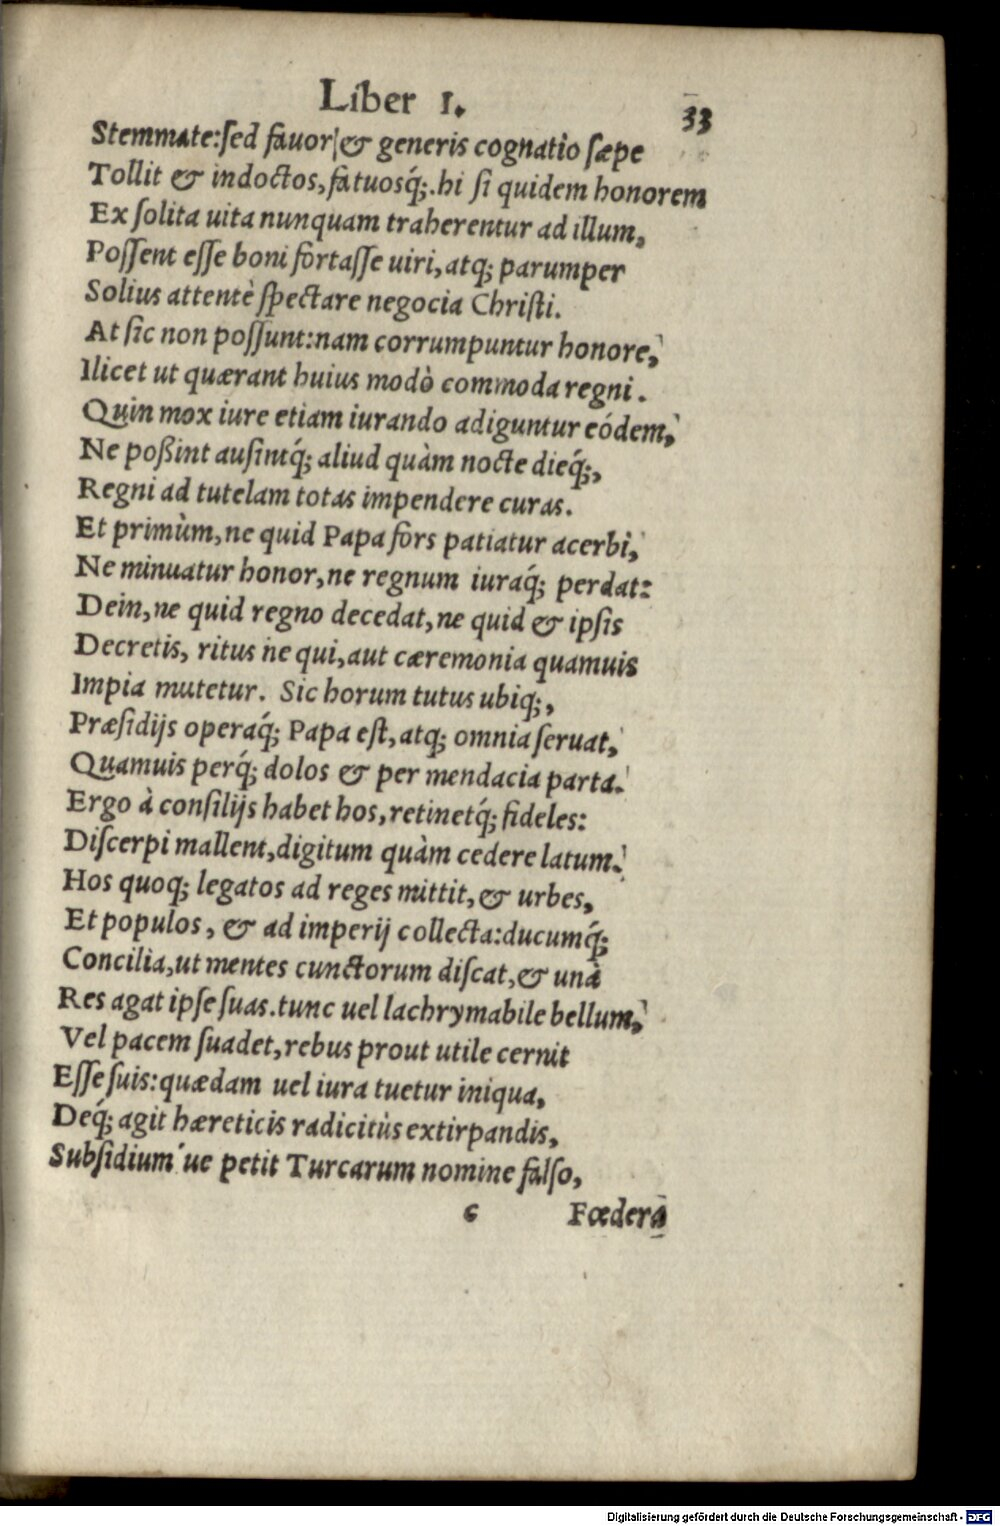 Liber I.
33
Stemmate:ſed fauor,& generis cognatio ſæpe
Tollit & indoctos,fatuosq́;.hi ſi quidem honorem
Ex ſolita uita nunquam traherentur ad illum,
Poſſent eſſe boni fortaſſe uiri,atq; parumper
Solius attentè ſpectare negocia Chriſti.
At ſic non poſſunt:nam corrumpuntur honore,
Ilicet ut quærant huius modò commoda regni.
Quin mox iure etiam iurando adiguntur eódem,
Ne poßint auſintq́; aliud quàm nocte dieq́;,
Regni ad tutelam totas impendere curas.
Et primùm,ne quid Papa fors patiatur acerbi,
Ne minuatur honor,ne regnum iuraq́; perdat:
Dein,ne quid regno decedat,ne quid & ipſis
Decretis, ritus ne qui,aut cæremonia quamuis
Impia mutetur. Sic horum tutus ubiq;,
Præſidijs operaq́; Papa eſt,atq; omnia ſeruat,
Quamuis perq́; dolos & per mendacia parta.
Ergo à conſilijs habet hos,retinetq́; fideles:
Diſcerpi mallent,digitum quàm cedere latum.
Hos quoq; legatos ad reges mittit,& urbes,
Et populos, & ad imperij collecta:ducumq́;
Concilia,ut mentes cunctorum diſcat,& unà
Res agat ipſe ſuas.tunc uel lachrymabile bellum,
Vel pacem ſuadet,rebus prout utile cernit
Eſſe ſuis:quædam uel iura tuetur iniqua,
Deq́; agit hæreticis radicitùs extirpandis,
Subſidium ́ue petit Turcarum nomine falſo,
c
Fœdera
Digitalisierung gefördert durch die Deutsche Forschungsgemeinschaft - DFG